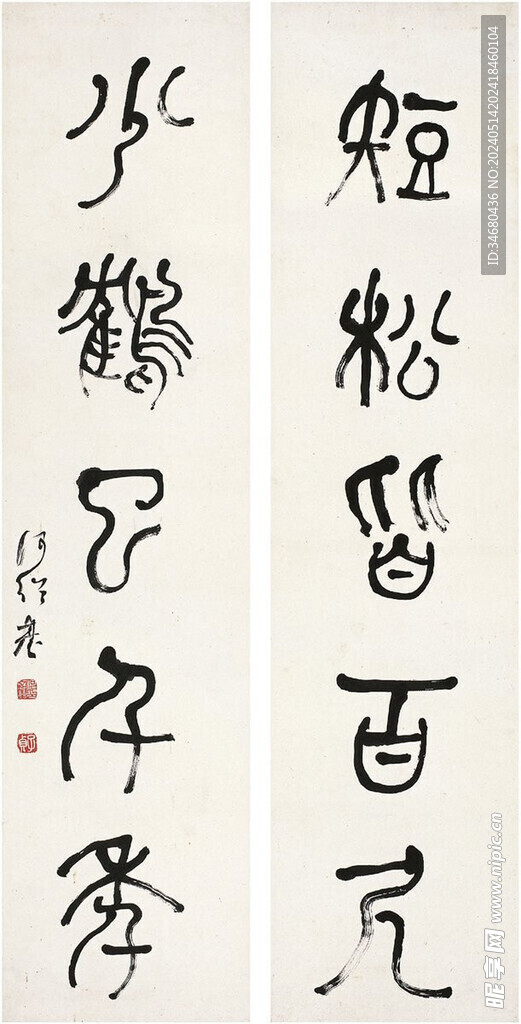 短松皆百尺
少鶴已千年
何紹基
子貞
ID:34680436 NO:20240514202418460104
昵享网 www.nipic.cn